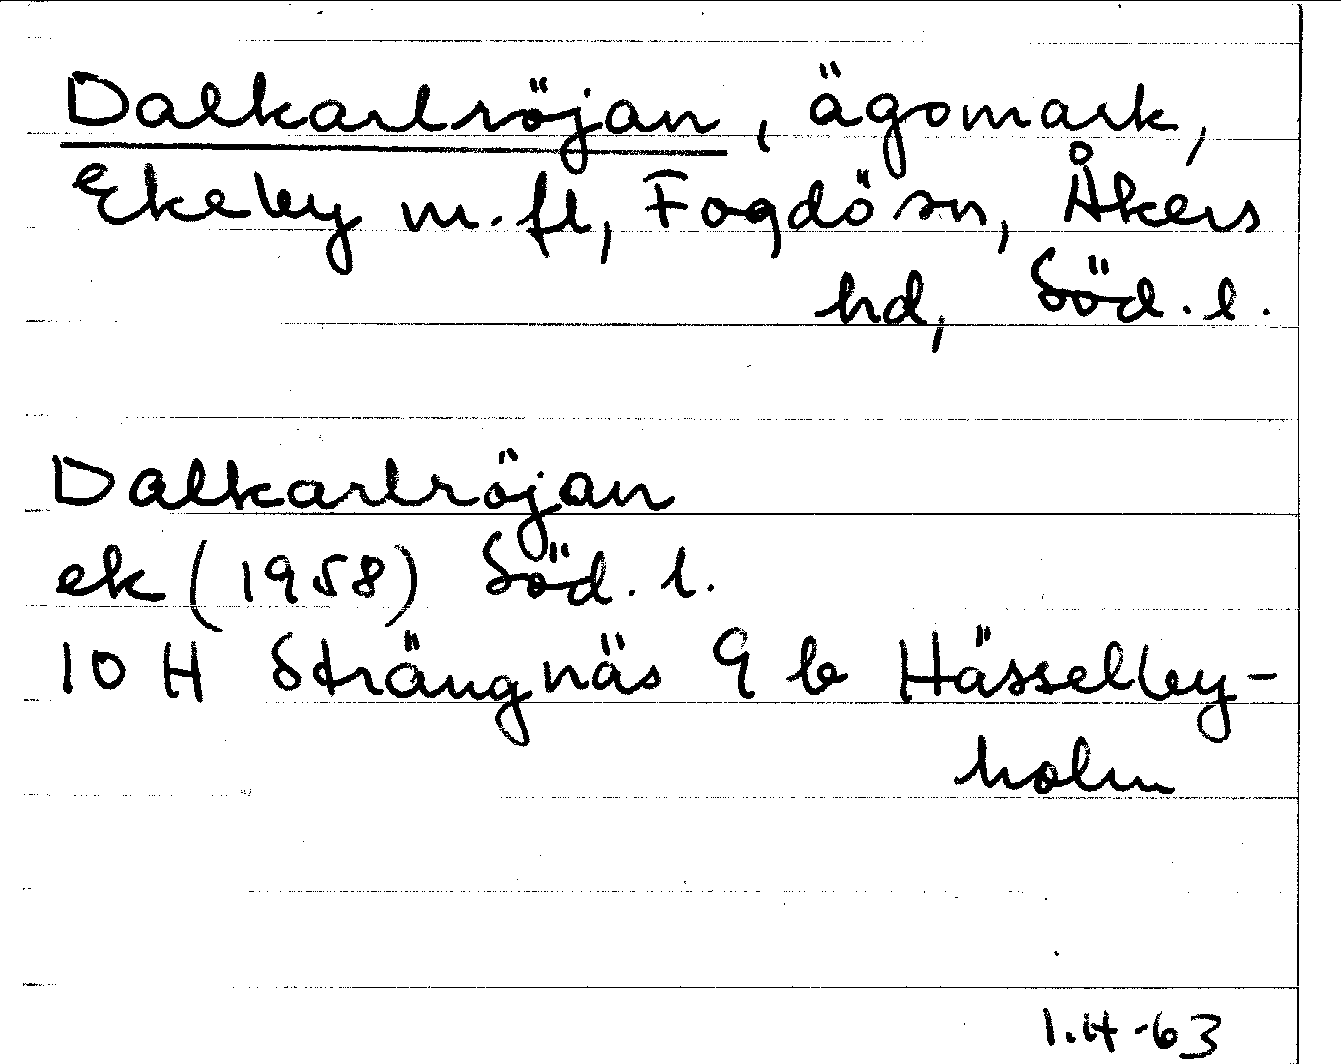 Dalkarlröjan, ägomark,
Ekeby m.fl, Fogdö sn, Åkers
hd, Söd. l.
Dalkarlröjan
ek (1958) Söd. l.
10 H Strängnäs 9 b Hässelby-
holm
I.H-63